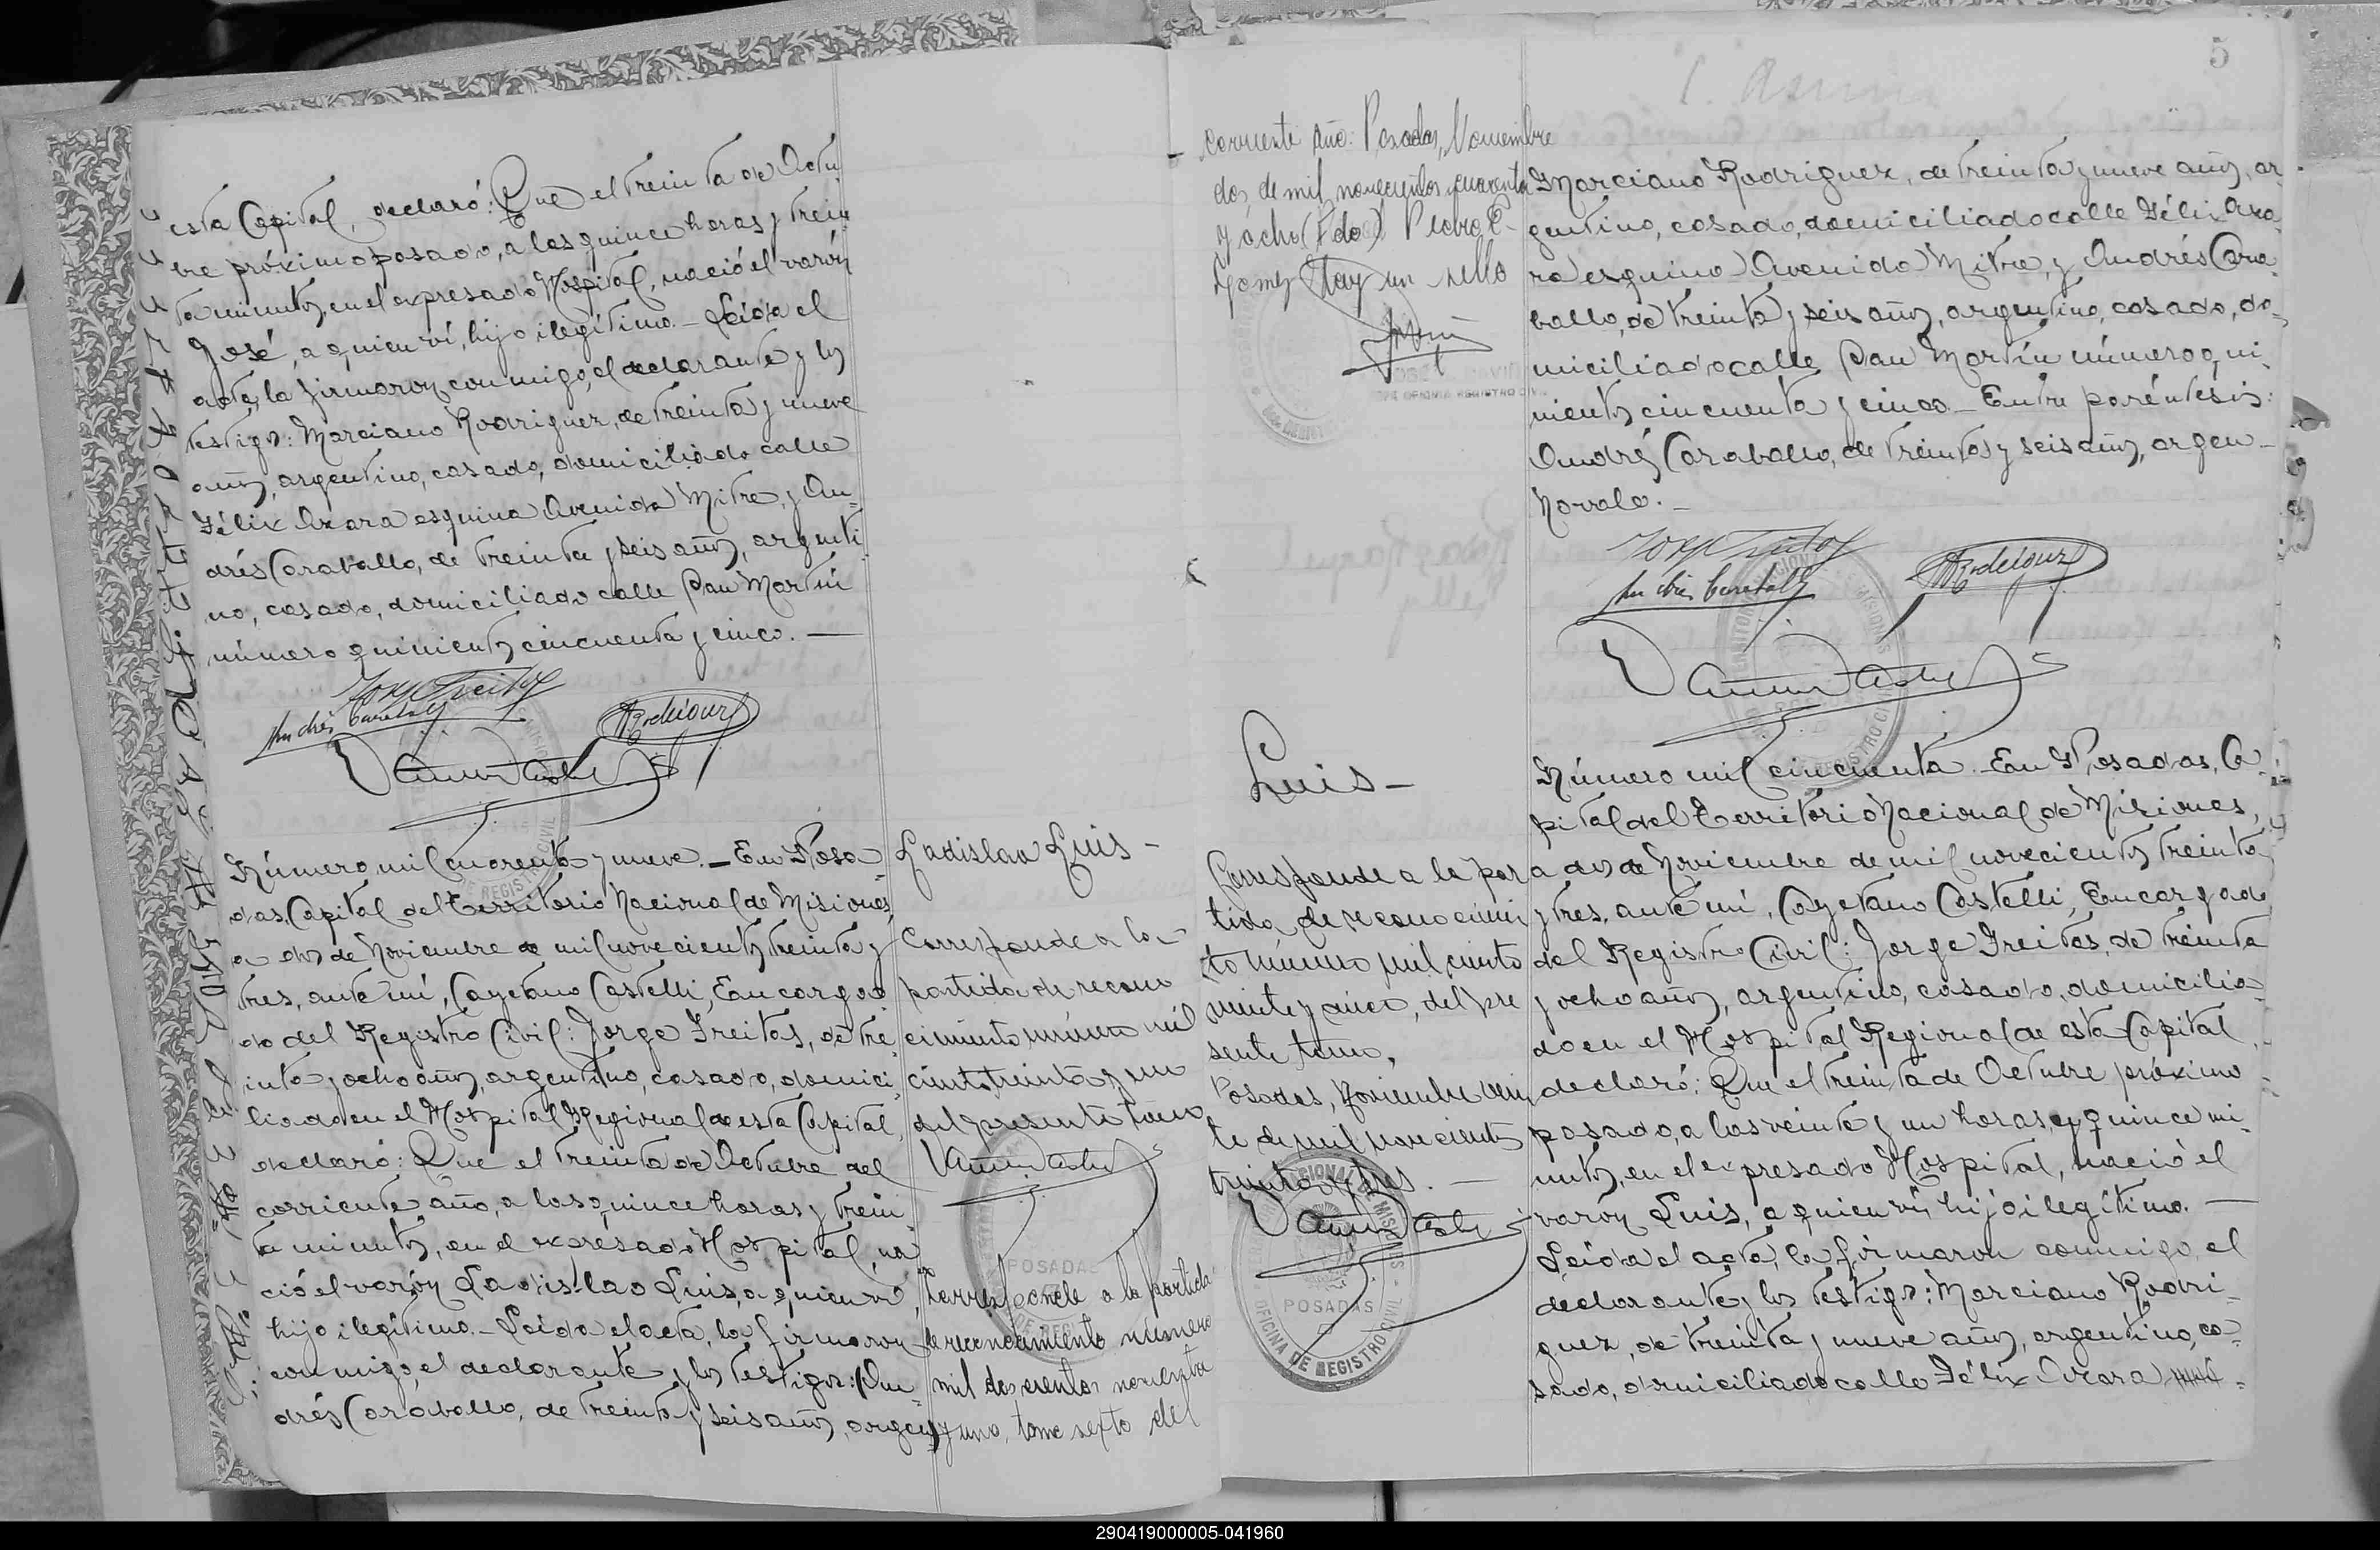 esta Capital, declaró: Que el treinta de Octu
bre próximo pasado, a las quince horas y trein
ta minutos, en el expresado Hospital, nació el varón
José, a quien ví, hijo ilegítimo.- Leída el
acta, la firmaron conmigo, el declarante y los
testigos: Marciano Rodriguez, de treinta y nueve
años, argentino, casado, domiciliado calle
Félix Azara esquina Avenida Mitre, y An-
drés Caraballo, de treinta y seis años, argenti
no, casado, domiciliado calle San Martín
número quinientos cincuenta y cinco.-
Jorge Freitas
Andrés Caraballo
Rodriguez
Número mil cuarenta y nueve.- En Posa
das, Capital del Territorio Nacional de Misiones,
a dos de Noviembre de mil novecientos treinta y
tres, ante mí, Cayetano Castelli, Encarga
do del Registro Civil: Jorge Freitas, de tre-
inta y ocho años, argentino, casado, domici-
liado en el Hospital Regional de esta Capital,
declaró: Que el treinta de Octubre del
corriente año, a las quince horas y trein-
ta minutos, en el expresado Hospital, na
ció el varón Ladislao Luis, a quien ví,
hijo ilegítimo.- Leída el acta, la firmaron
conmigo, el declarante y los testigos: (An
drés Caraballo, de treinta y seis años, argen)
Ladislao Luis-
Corresponde a la
partida de recono
cimiento número mil
ciento treinta y un
del presente tomo
POSADAS
Corresponde a la partida
de reconocimiento número
mil doscientos noventa
y uno, tomo sexto del
5
corriente año: Posadas, Noviembre
dos de mil novecientos cuarenta
y ocho (Fdo) Pedro C.
Gomez Hay un sello
OFICINA REGISTRO CIVIL
Marciano Rodriguez, de treinta y nueve años, ar-
gentino, casado, domiciliado calle Félix Aza
ra esquina Avenida Mitre, y Andrés Cara-
ballo, de treinta y seis años, argentino, casado, do-
miciliado calle San Martín número qui-
nientos cincuenta y cinco.- Entre paréntesis:
Andrés Caraballo, de treinta y seis años, argen-
No vale.-
Jorge Freitas
Andrés Caraballo
Rodriguez
Luis-
Corresponde a la par
tida de reconocimi
to número mil ciento
veinte y cinco, del pre
sente tomo,
Posadas, Noviembre vein
te de mil novecientos
treinta y tres.-
POSADAS
OFICINA DE REGISTRO CIVIL
Número mil cincuenta.- En Posadas, Ca-
pital del Territorio Nacional de Misiones,
a dos de Noviembre de mil novecientos treinta
y tres, ante mí, Cayetano Castelli, Encargado
del Registro Civil: Jorge Freitas, de treinta
y ocho años, argentino, casado, domicilia-
do en el Hospital Regional de esta Capital,
declaró: Que el treinta de Octubre próximo
pasado, a las veinte y un horas, quince mi-
nutos, en el expresado Hospital, nació el
varón Luis, a quien ví, hijo ilegítimo.-
Leída el acta, la firmaron conmigo, el
declarante y los testigos: Marciano Rodri-
guez, de treinta y nueve años, argentino, ca-
sado, domiciliado calle Félix Azara
290419000005-041960